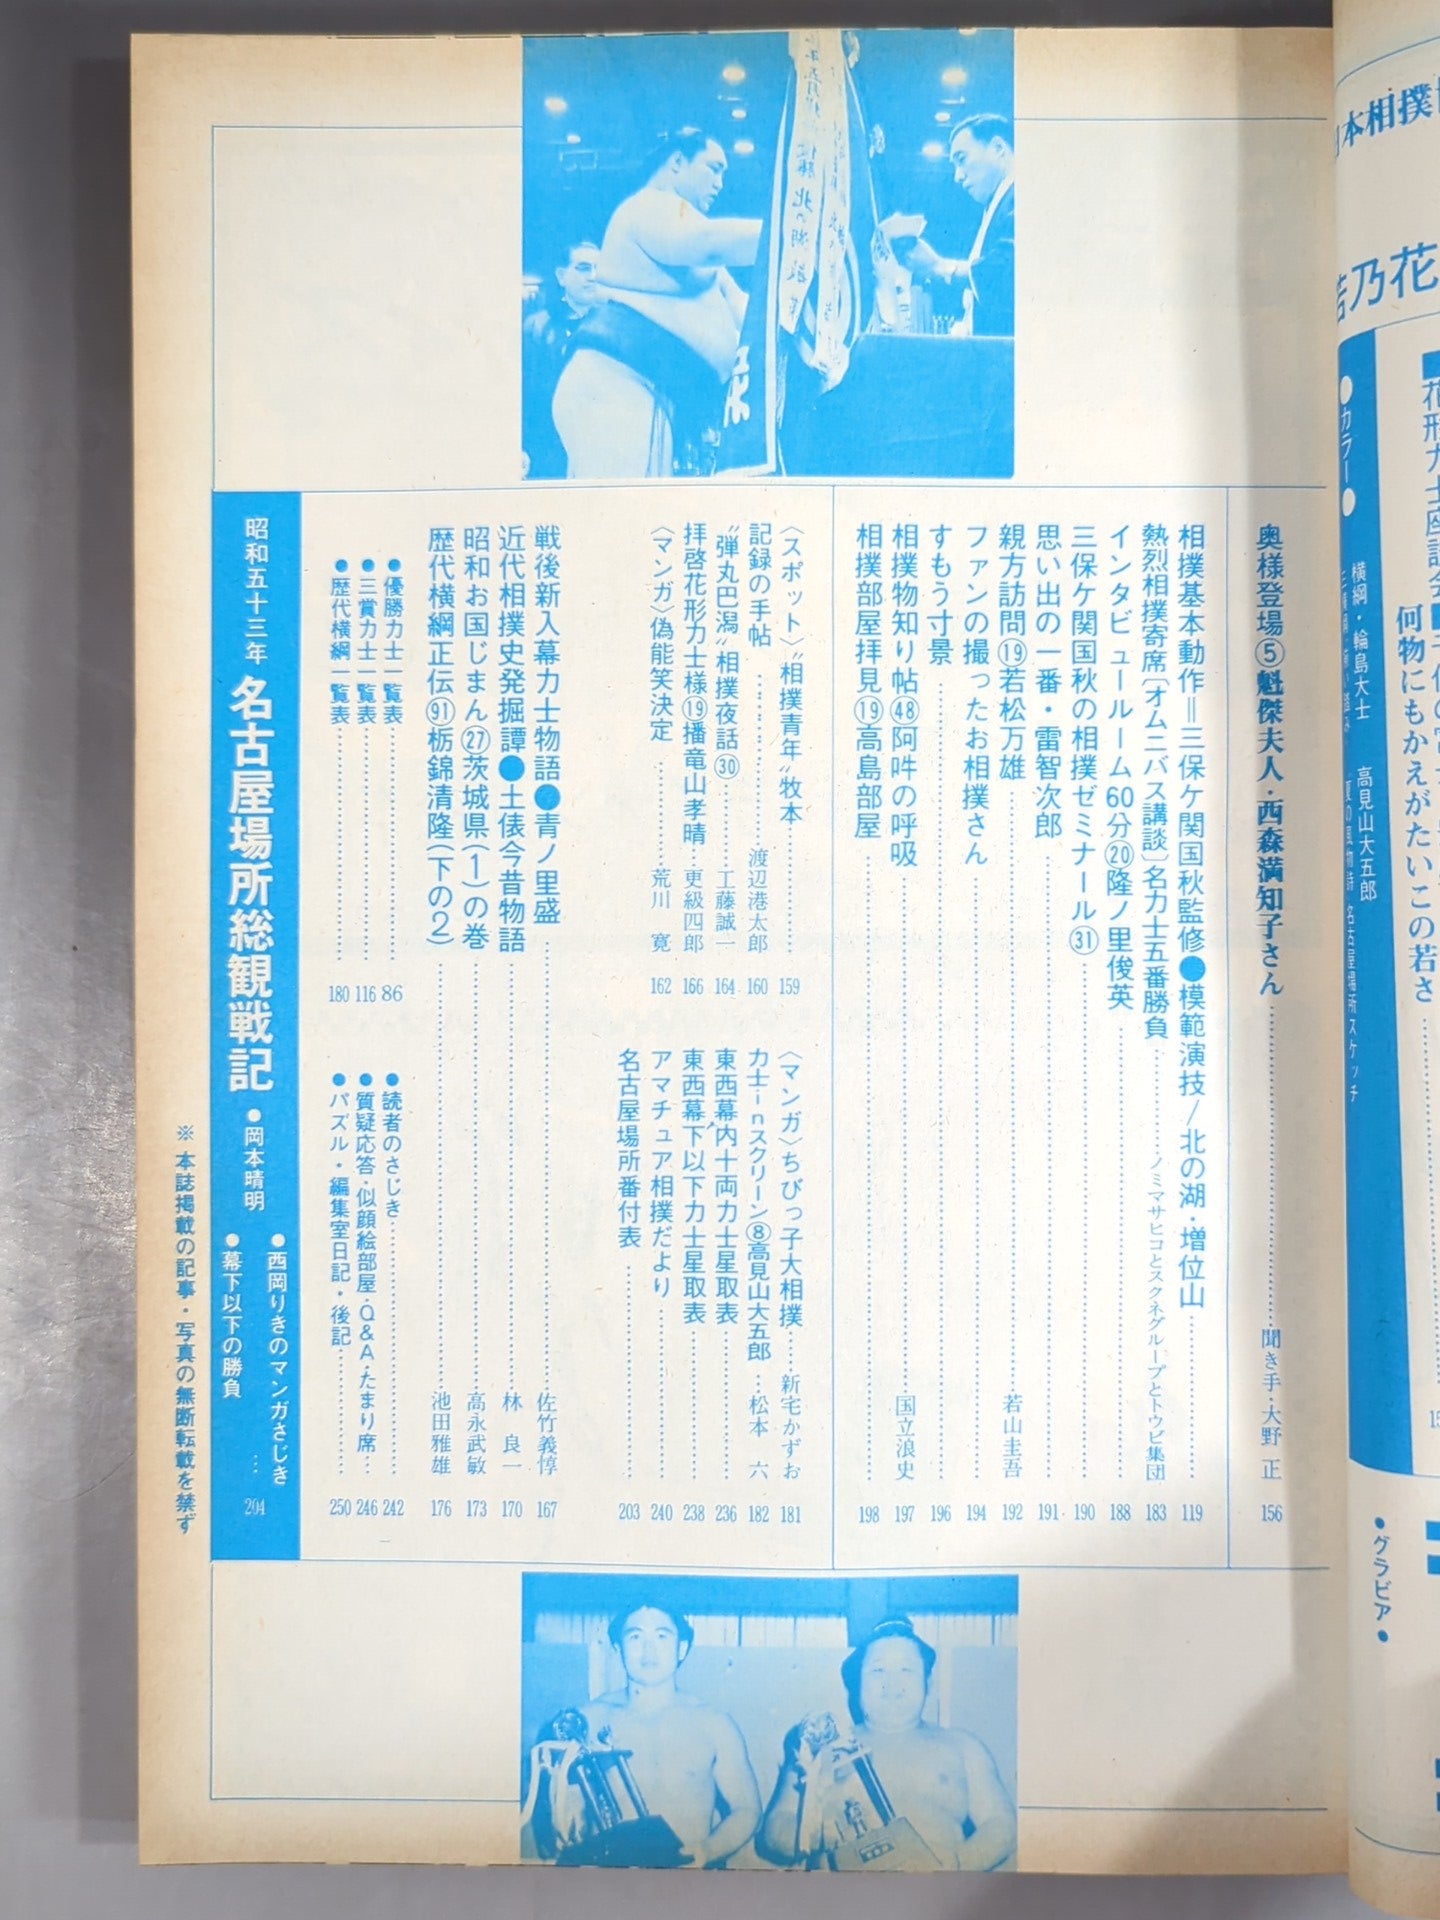 奥様登場⑤魁傑夫人・西森満知子さん……聞き手・大野 正 156
相撲基本動作＝三保ケ関国秋監修●模範演技／北の湖・増位山……119
熱烈相撲寄席〔オムニバス講談〕名力士五番勝負……ノミマサヒコとスクネグループとトウビ集団 183
インタビュールーム60分⑳隆ノ里俊英……188
三保ケ関国秋の相撲ゼミナール㉛……190
思い出の一番・雷智次郎……191
親方訪問⑲若松万雄……若山圭吾 192
ファンの撮ったお相撲さん……194
すもう寸景……196
相撲物知り帖㊽阿吽の呼吸……国立浪史 197
相撲部屋拝見⑲高島部屋……198
〈スポット〉“相撲青年”牧本……159
記録の手帖……渡辺港太郎 160
“弾丸巴潟”相撲夜話㉚……工藤誠一 164
拝啓花形力士様⑲播竜山孝晴…更級四郎 166
〈マンガ〉偽能笑決定……荒川 寛 162
〈マンガ〉ちびっ子大相撲……新宅かずお 181
力士inスクリーン⑧高見山大五郎…松本 六 182
東西幕内十両力士星取表……236
東西幕下以下力士星取表……238
アマチュア相撲だより……240
名古屋場所番付表……203
戦後新入幕力士物語●青ノ里盛……佐竹義惇 167
近代相撲史発掘譚●土俵今昔物語……林 良一 170
昭和お国じまん㉗茨城県(1)の巻……高永武敏 173
歴代横綱正伝�91栃錦清隆(下の2)……池田雅雄 176
●優勝力士一覧表……86
●三賞力士一覧表……116
●歴代横綱一覧表……180
●読者のさじき……242
●質疑応答・似顔絵部屋・Q&A・たまり席…246
●パズル・編集室日記・後記……250
昭和五十三年 名古屋場所総観戦記●岡本晴明
●西岡りきのマンガさじき
●幕下以下の勝負 … 204
※本誌掲載の記事・写真の無断転載を禁ず
本相撲
乃花
●カラー●
横綱・輪島大士
高見山大五郎
名古屋場所スケッチ
何物にもかえがたいこの若さ
●グラビア●